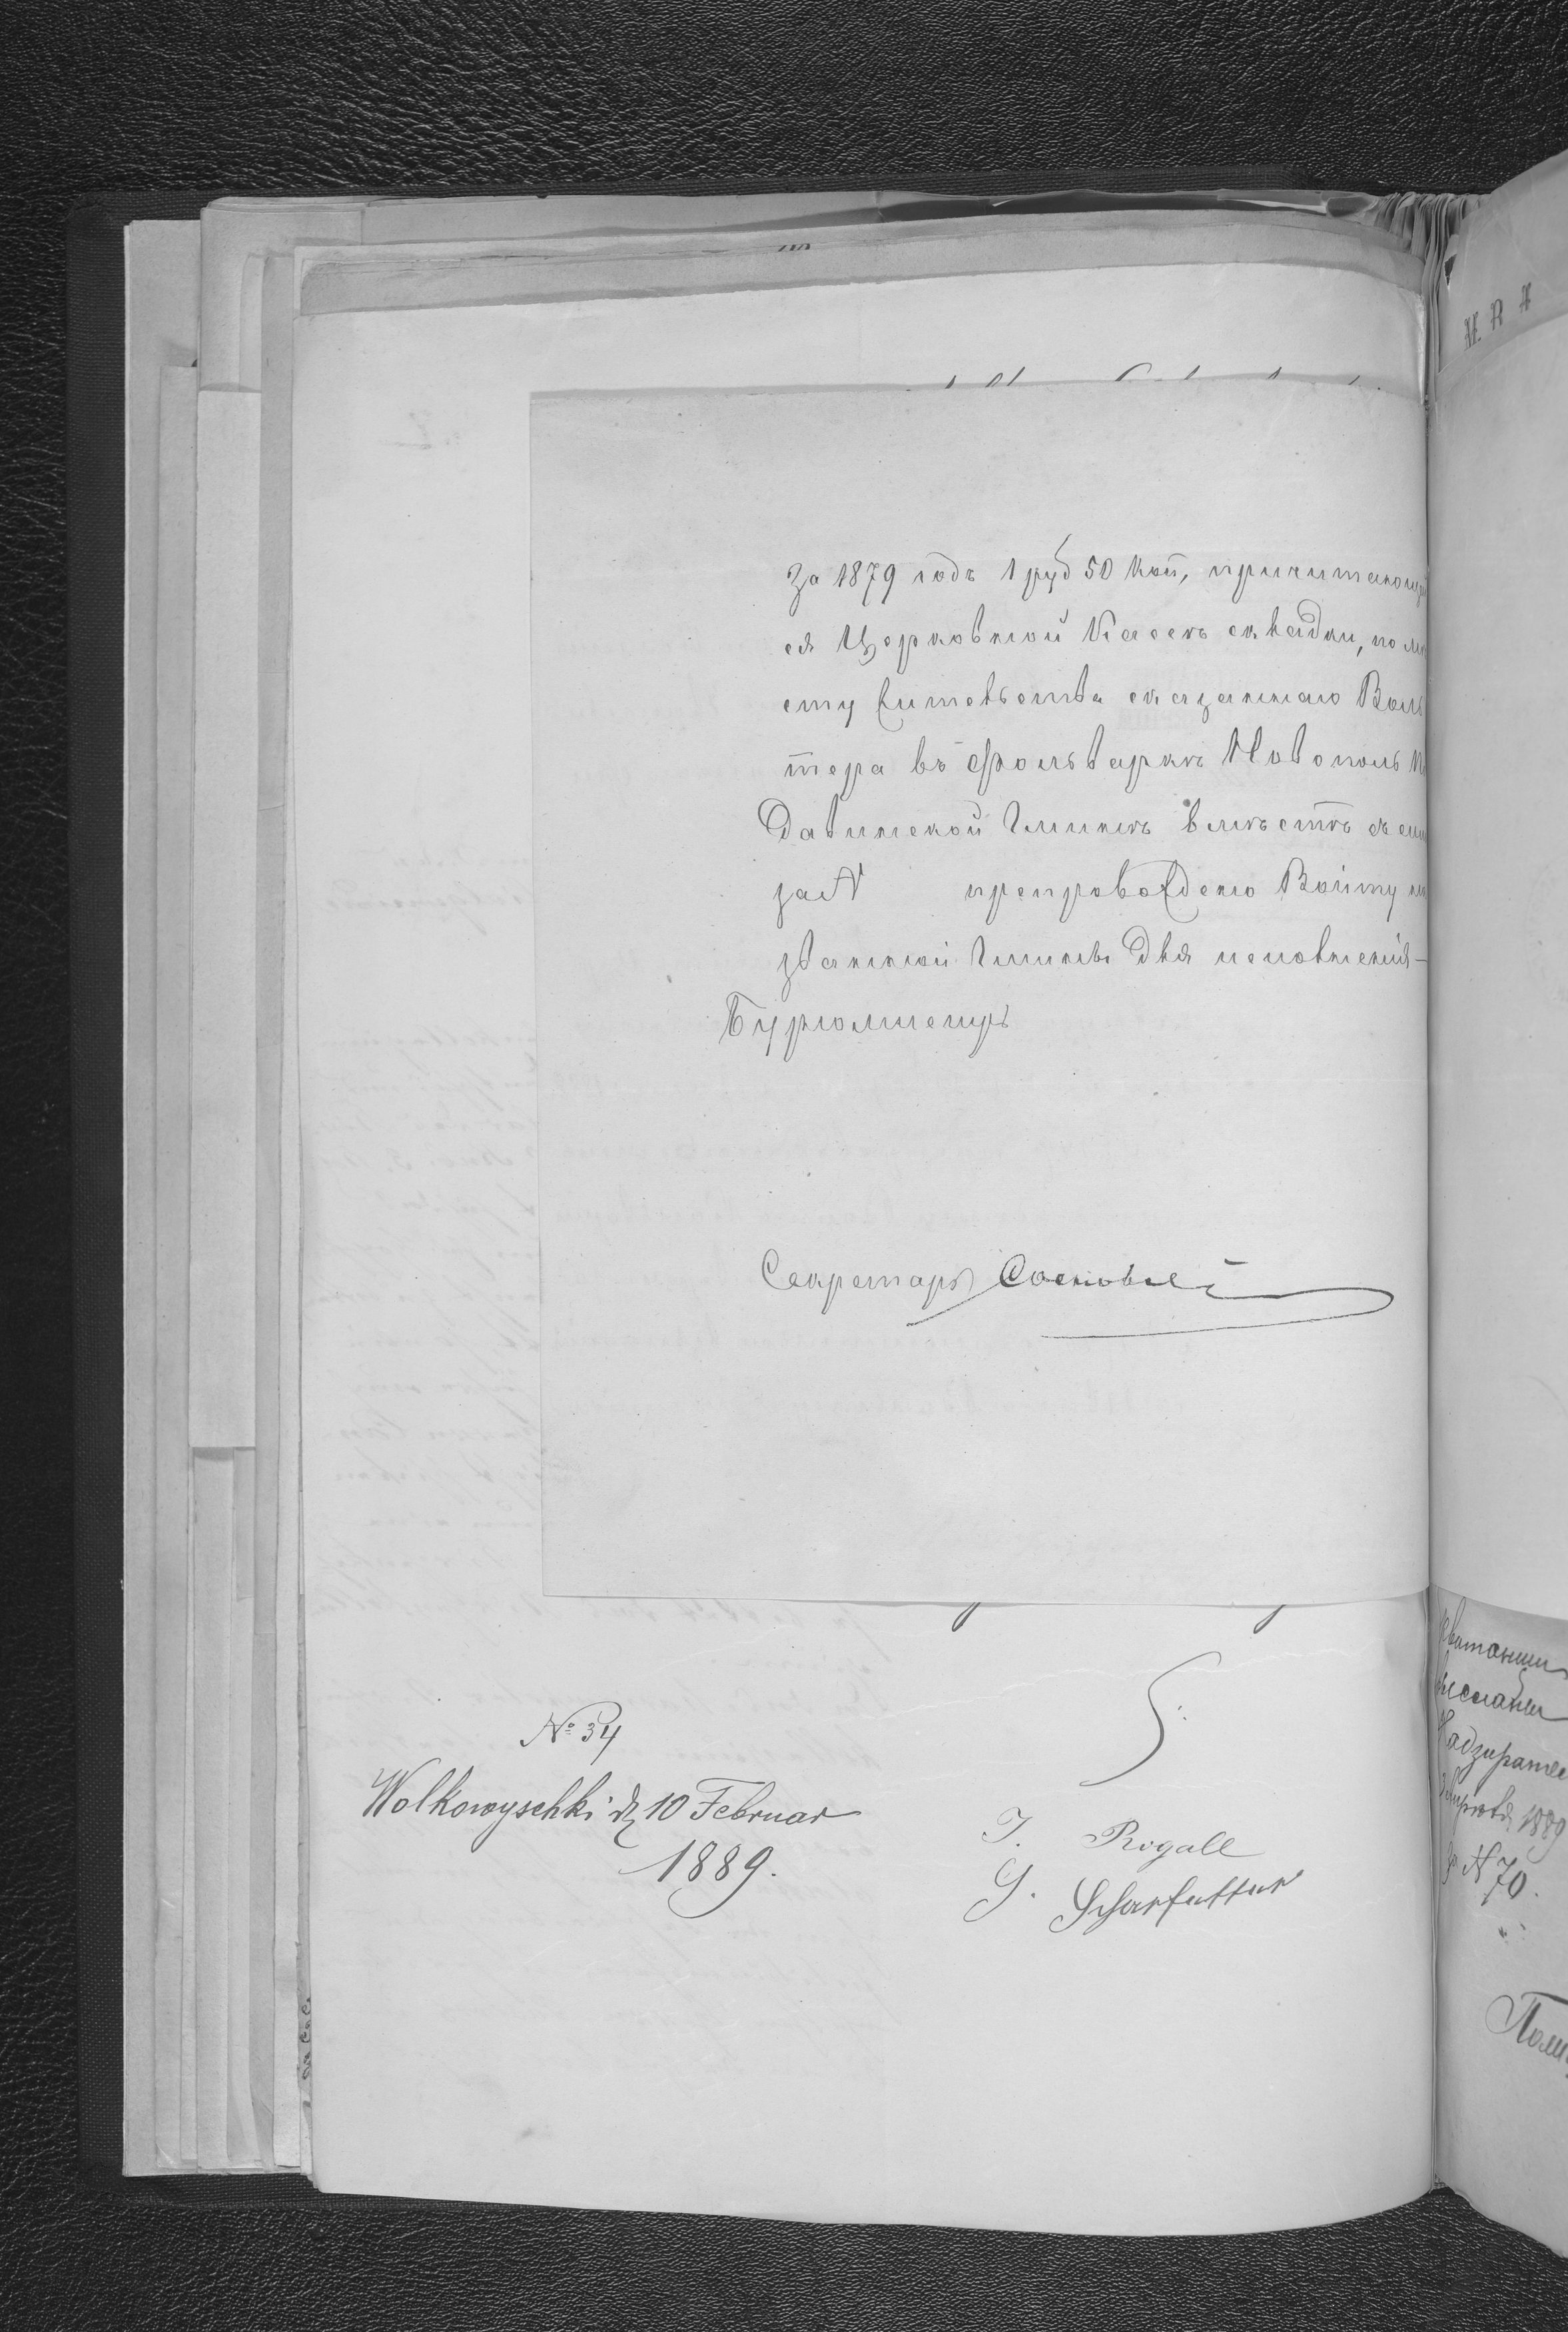 За 1879 годъ 1 руб 50 коп, причитающа
ся Церковной Кассѣ складки, по мѣ
сту жительства сказаннаго Валь
тера въ фольваркѣ Новополь
Давинской Гминѣ вмѣстѣ съ
за N препровождено Войту на
званной Гмины для исполненія—
Бургомистръ
Секретарь Сосновскій
№ 34
Wolkowyschki d. 10 Februar
1889.
J. Rogall
G. Scharfetter
Квитанціи
Надзирате
1889
за N 70.